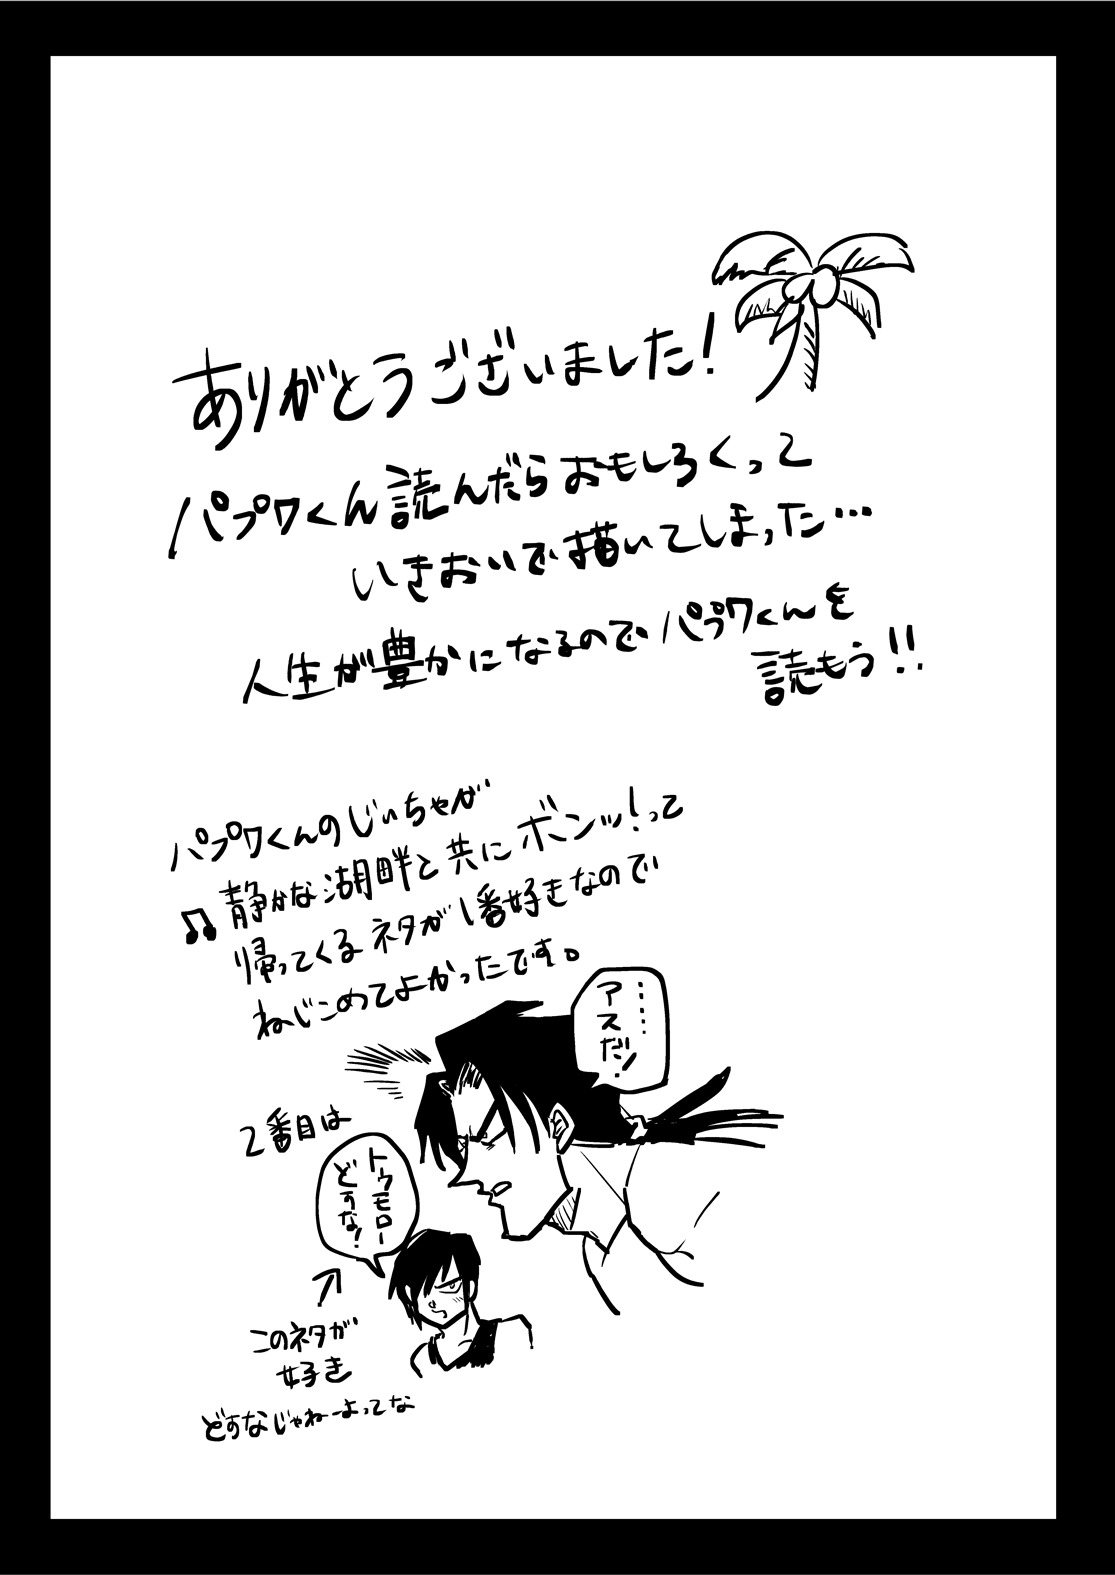 ありがとうございました!
パプワくん読んだらおもしろくって
いきおいで描いてしまった…
人生が豊かになるのでパプワくんを
読もう!!
パプワくんのじいちゃが
♫静かな湖畔と共にボンッ!って
帰ってくるネタが1番好きなので
ねじこめてよかったです。
……
アスだ!
2番目は
トウモロー
どすな!
このネタが
好き
どすなじゃねーよってな